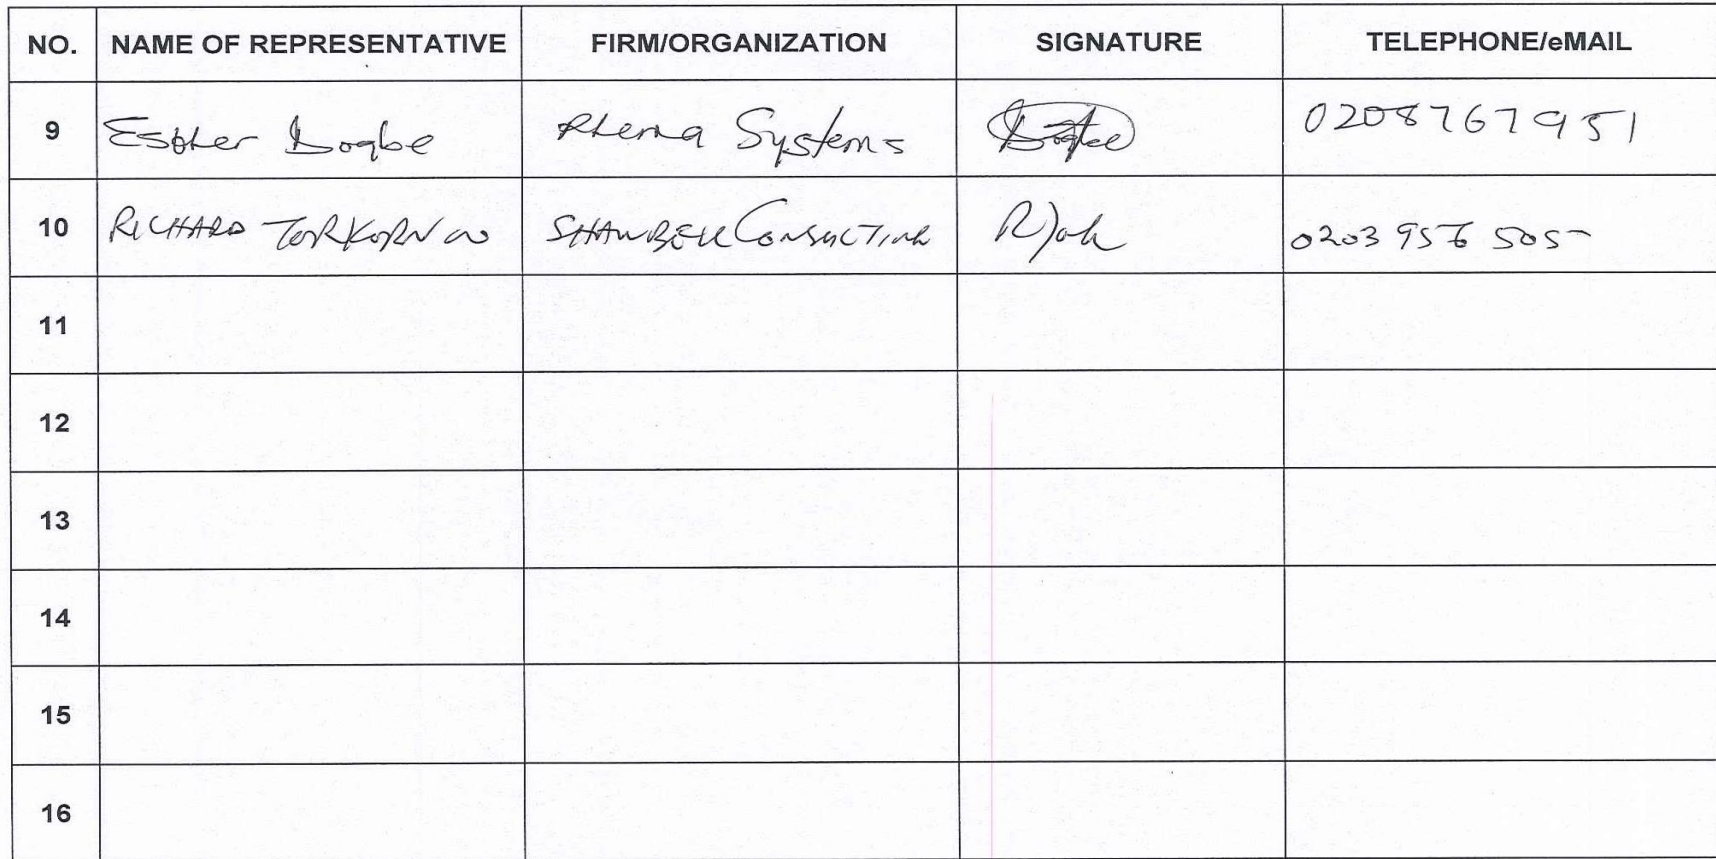 NO. NAME OF REPRESENTATIVE FIRM/ORGANIZATION SIGNATURE TELEPHONE/eMAIL
9 Esther Dogbe Rhema Systems 0208767951
10 RICHARD TORKORNOO SHAWBELL CONSULTING
11
12
13
14
15
16